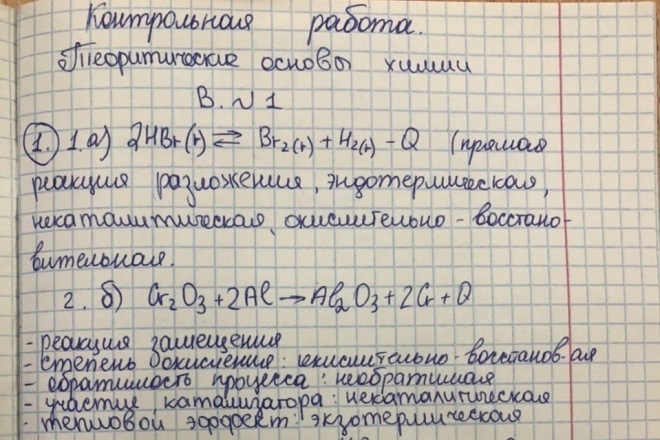 Контрольная работа.
Теоритические основы химии
В. № 1
1. 1.а) 2HBr(г) ⇄ Br₂(г) + H₂(г) - Q (прямая
реакция разложения, эндотермическая,
некаталитическая, окислительно - восстано-
вительная.
2. б) Cr₂O₃ + 2Al → Al₂O₃ + 2Cr + Q
- реакция замещения
- степень окисления: окислительно - восстанов-ая
- обратимость процесса: необратимая
- участие катализатора: некаталическая
- тепловой эффект: экзотермическая